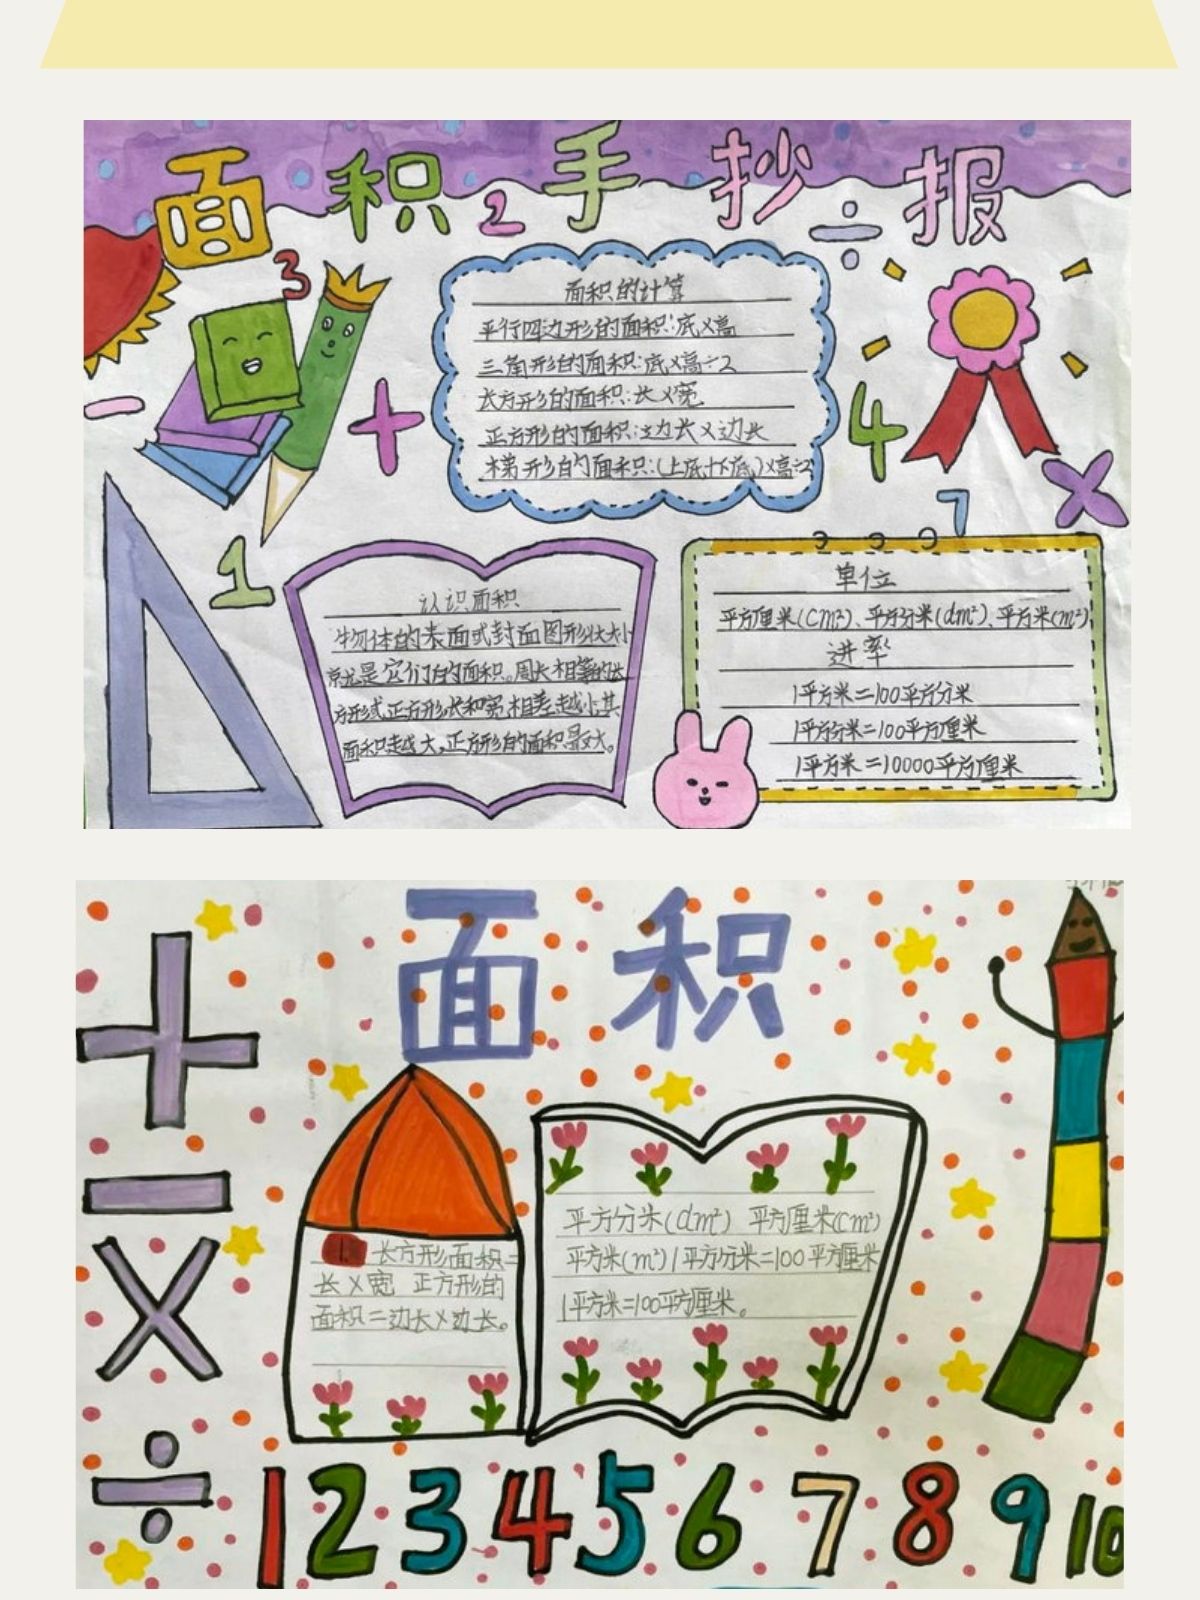 面积手抄报
2
÷
3
面积的计算
平行四边形的面积:底×高
三角形的面积:底×高÷2
长方形的面积:长×宽
正方形的面积:边长×边长
梯形的面积:(上底+下底)×高÷2
-
+
4
7
×
1
认识面积
物体的表面或封面图形状大小
就是它们的面积。周长相等的长
方形或正方形长和宽相差越小其
面积越大,正方形的面积最大。
单位
平方厘米(cm²)、平方分米(dm²)、平方米(m²)
进率
1平方米=100平方分米
1平方分米=100平方厘米
1平方米=10000平方厘米
面积
+
-
×
÷
长方形面积=
长×宽 正方形的
面积=边长×边长。
平方分米(dm²) 平方厘米(cm²)
平方米(m²)1平方分米=100平方厘米
1平方米=100平方厘米。
1 2 3 4 5 6 7 8 9 10